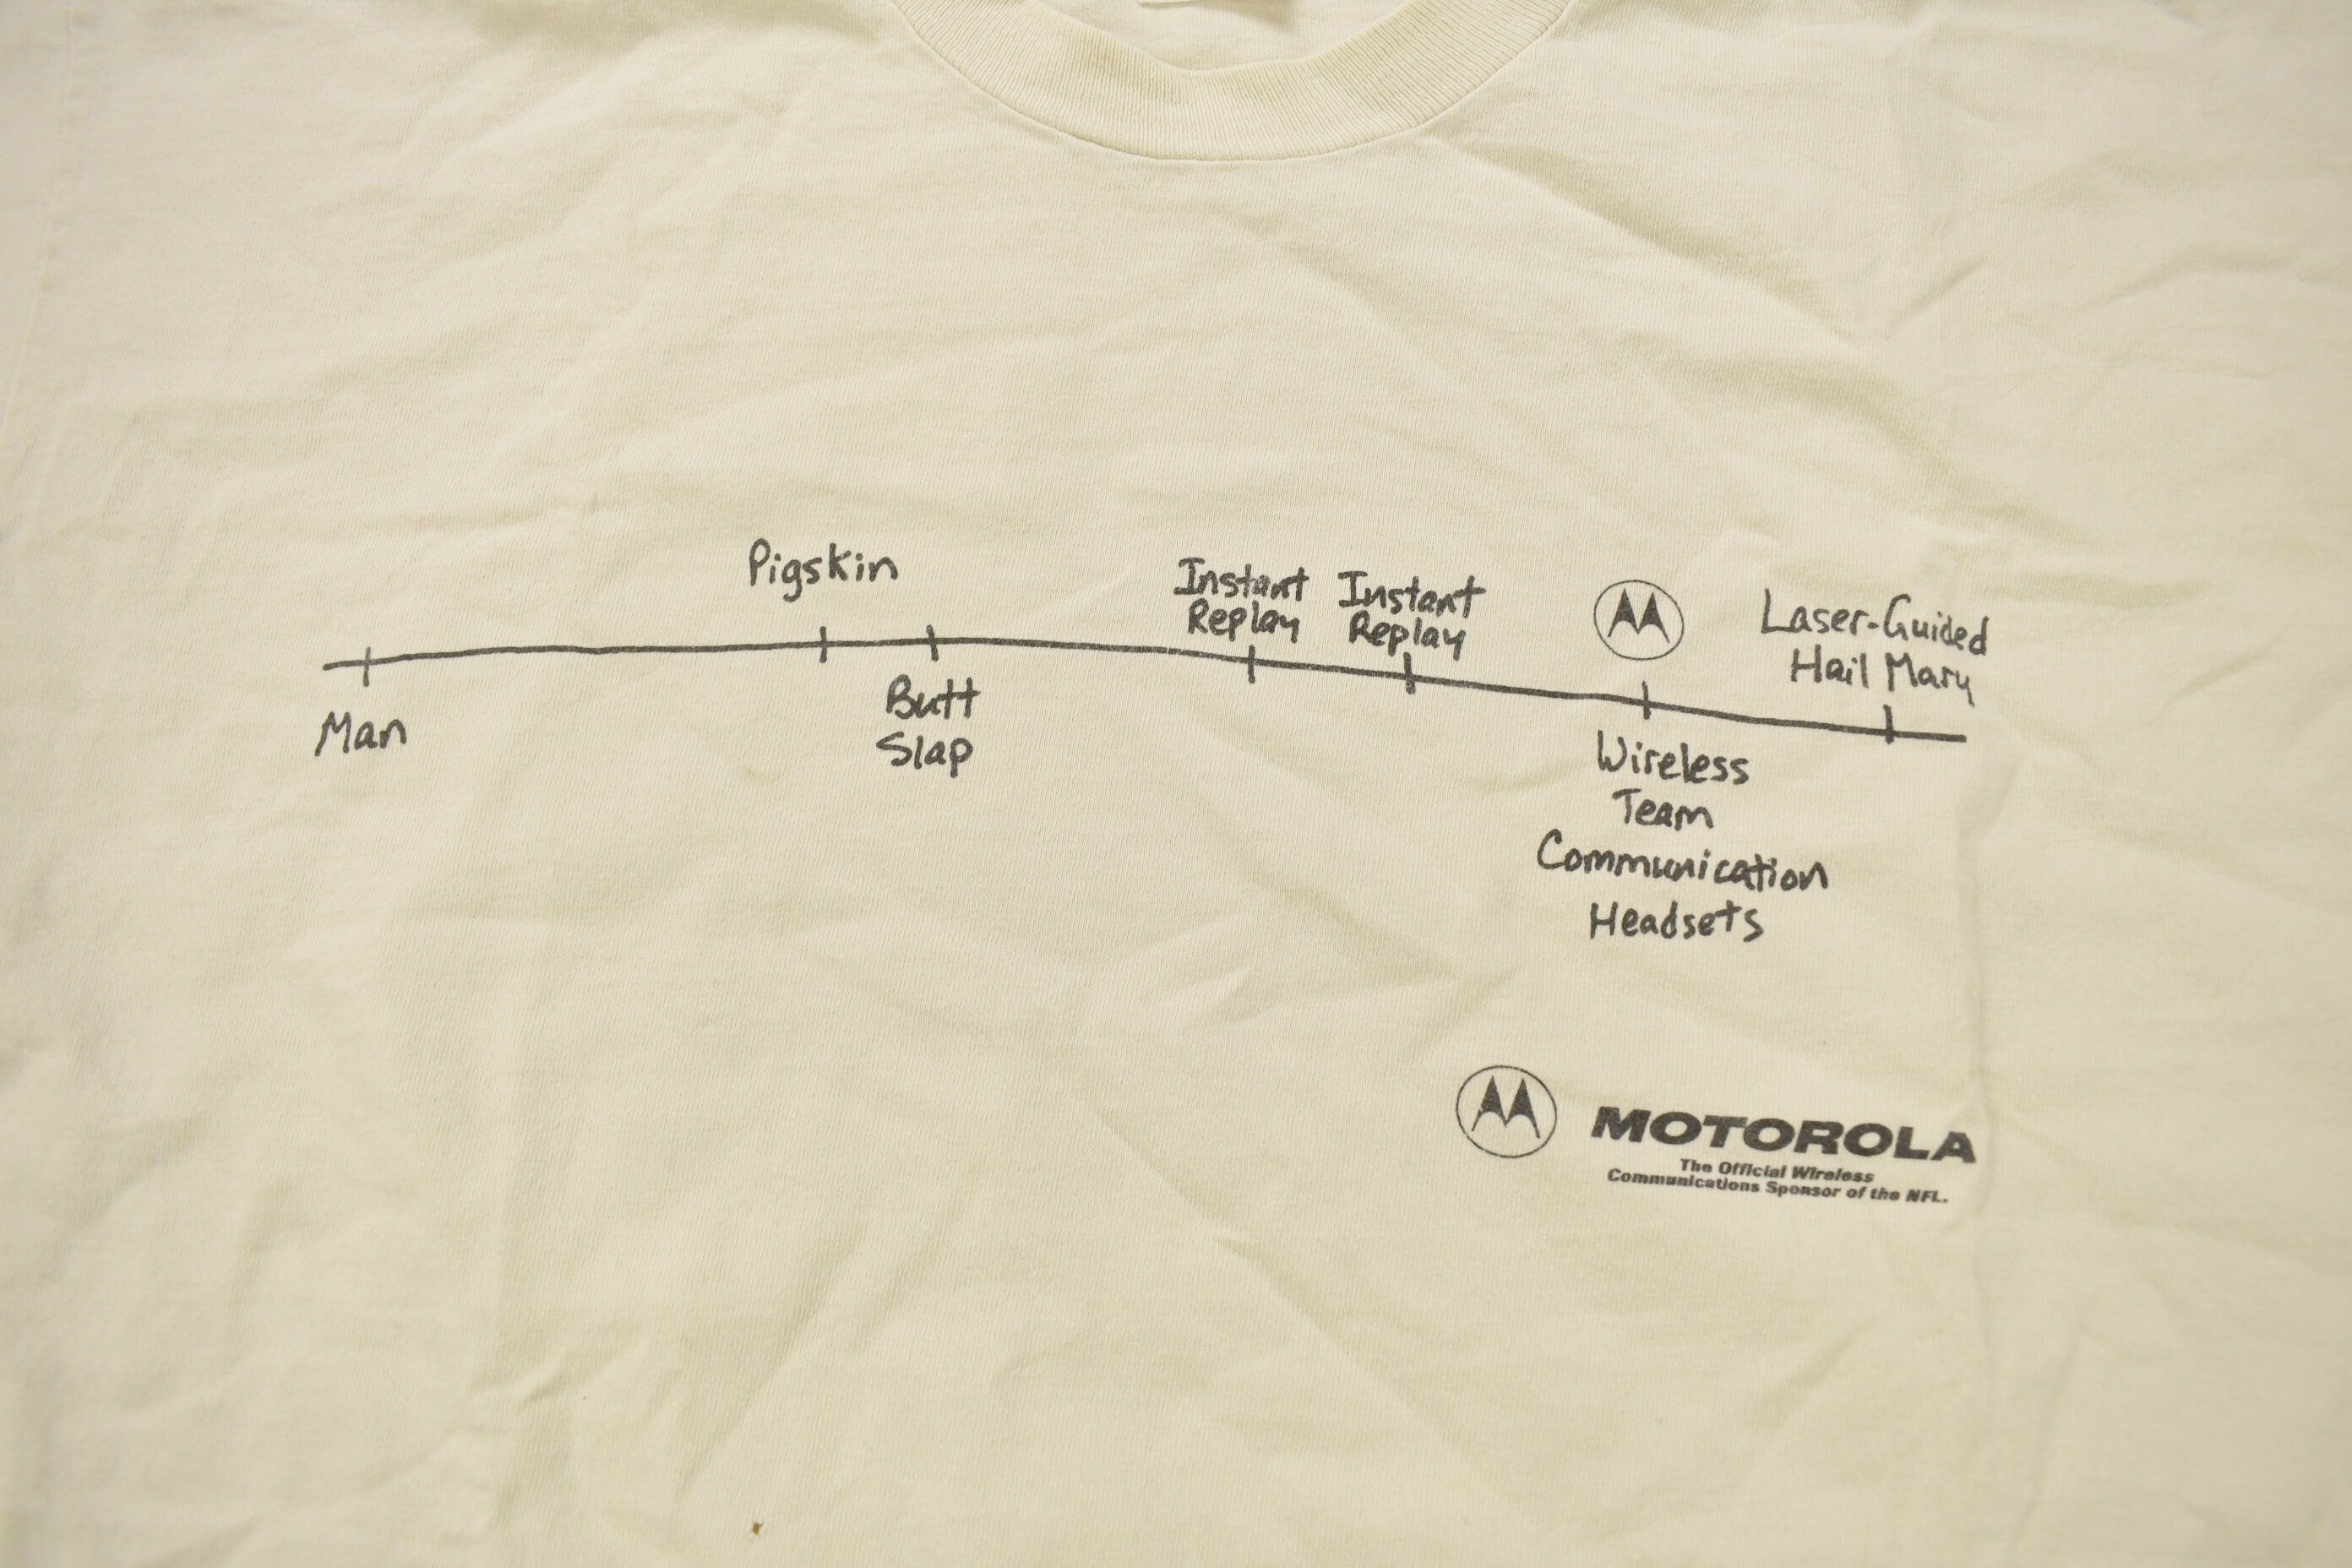 Man
Pigskin
Butt
Slap
Instant
Replay
Instant
Replay
Wireless
Team
Communication
Headsets
Laser-Guided
Hail Mary
MOTOROLA
The Official Wireless
Communications Sponsor of the NFL.